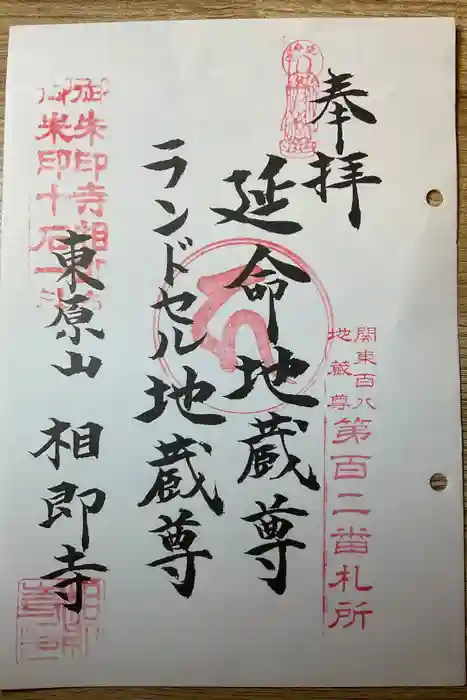 奉拝
関東百八
地蔵尊
第百二番札所
延命地蔵尊
ランドセル地蔵尊
東原山 相即寺
御朱印寺相即寺
御朱印十石一斗